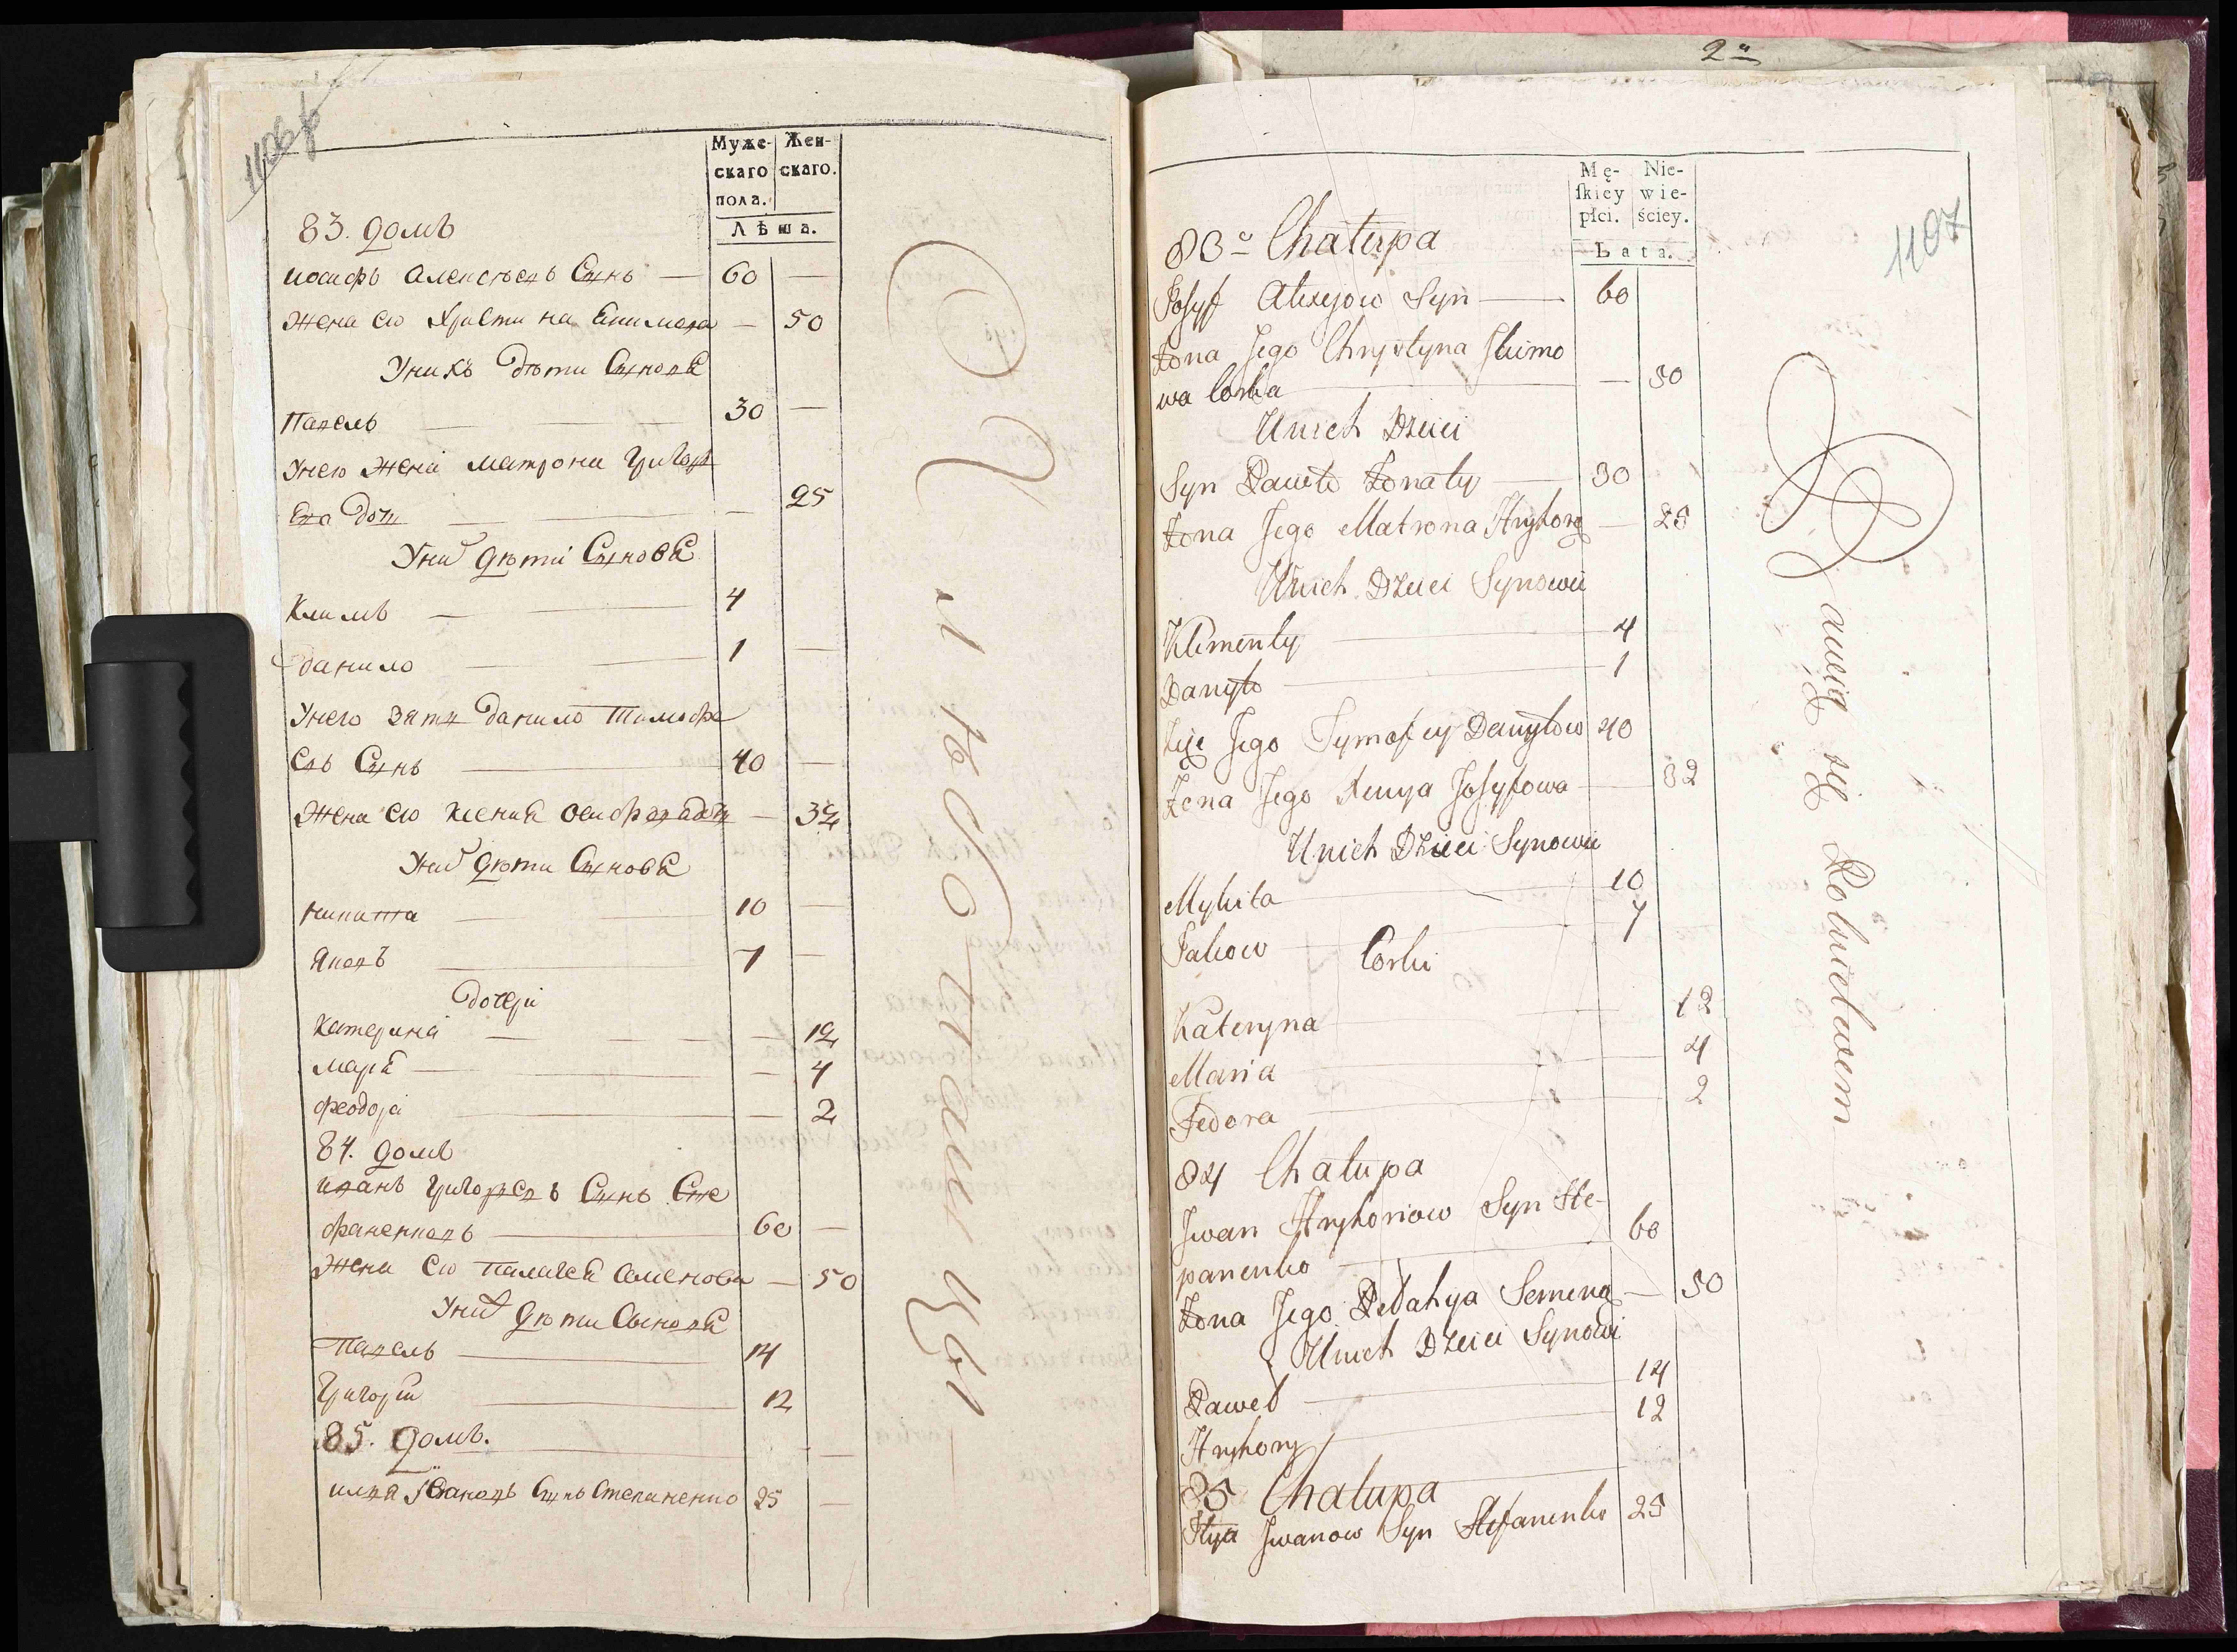 1106 об
Муже-
скаго
пола.
Жен-
скаго.
Лѣта.
83. домъ
иосифъ алексѣевъ Сынъ — 60 —
жена его Христина Екимова — 50
Унихъ дѣти Сыновѣ
Павелъ — 30 —
Унего жена матрона Григор
Ева дочь — 25
Унихъ дѣти Сыновѣ
Климъ — 4
данило — 1 —
Унего зять данило тимофе
Евъ Сынъ — 40 —
жена его ксения осифова дочь — 32
Унихъ дѣти Сыновѣ
никита — 10 —
яковъ — 7 —
дочери
катерина — 12
мария — 4
феодора — 2
84. домъ
иванъ григорьевъ Сынъ Сте
фаненковъ — 60 —
жена его палагея семенова — 50
Унихъ дѣти Сыновѣ
павелъ — 14
Григорий — 12
85. домъ.
илия Ивановъ Сынъ Степаненко 25 —
2ª
1107
Mę-
ſkiey
płci.
Nie-
wie-
ściey.
Lata.
83ª Chałupa
Josyf Alexejow Syn — 60
Żona Jego Chrystyna Jkimo
wa Corka — 50
Unich Dzieci
Syn Pawło Żonaty — 30
Żona Jego Matrona Hryhorą — 25
Unich Dzieci Synowii
Klimenty — 4
Danyło — 1
Zięć Jego Tymofiy Danyłow 40
Żona Jego Xenya Josyfowa — 32
Unich Dzieci Synowii
Mykita — 10
Jakow — 7
Corki
Kateryna — 12
Maria — 4
Fedora — 2
84 Chałupa
Jwan Hryhoriow Syn Ste-
panenko — 60
Żona Jego Pełahya Semeną — 50
Unich Dzieci Synowi
Paweł — 14
Hryhory — 12
85 Chałupa
Jlya Jwanow Syn Stefanenko 25
Bawią się Rolnictwem